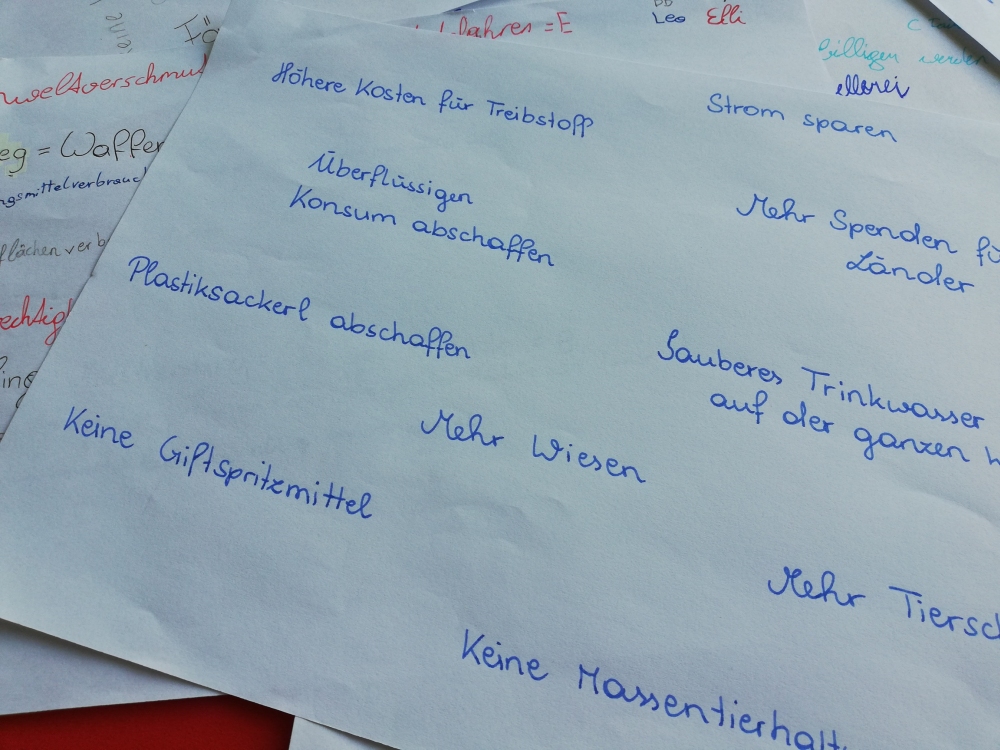 Jahren = E
Leo Elli
billigen werden
ellerei
Waffen
eg = Waffen
Höhere Kosten für Treibstoff
Strom sparen
Überflüssigen
Konsum abschaffen
Mehr Spenden fü
Länder
Plastiksackerl abschaffen
Sauberes Trinkwasser
auf der ganzen W
Keine Giftspritzmittel
Mehr Wiesen
Mehr Tiersc
Keine Massentierhalt